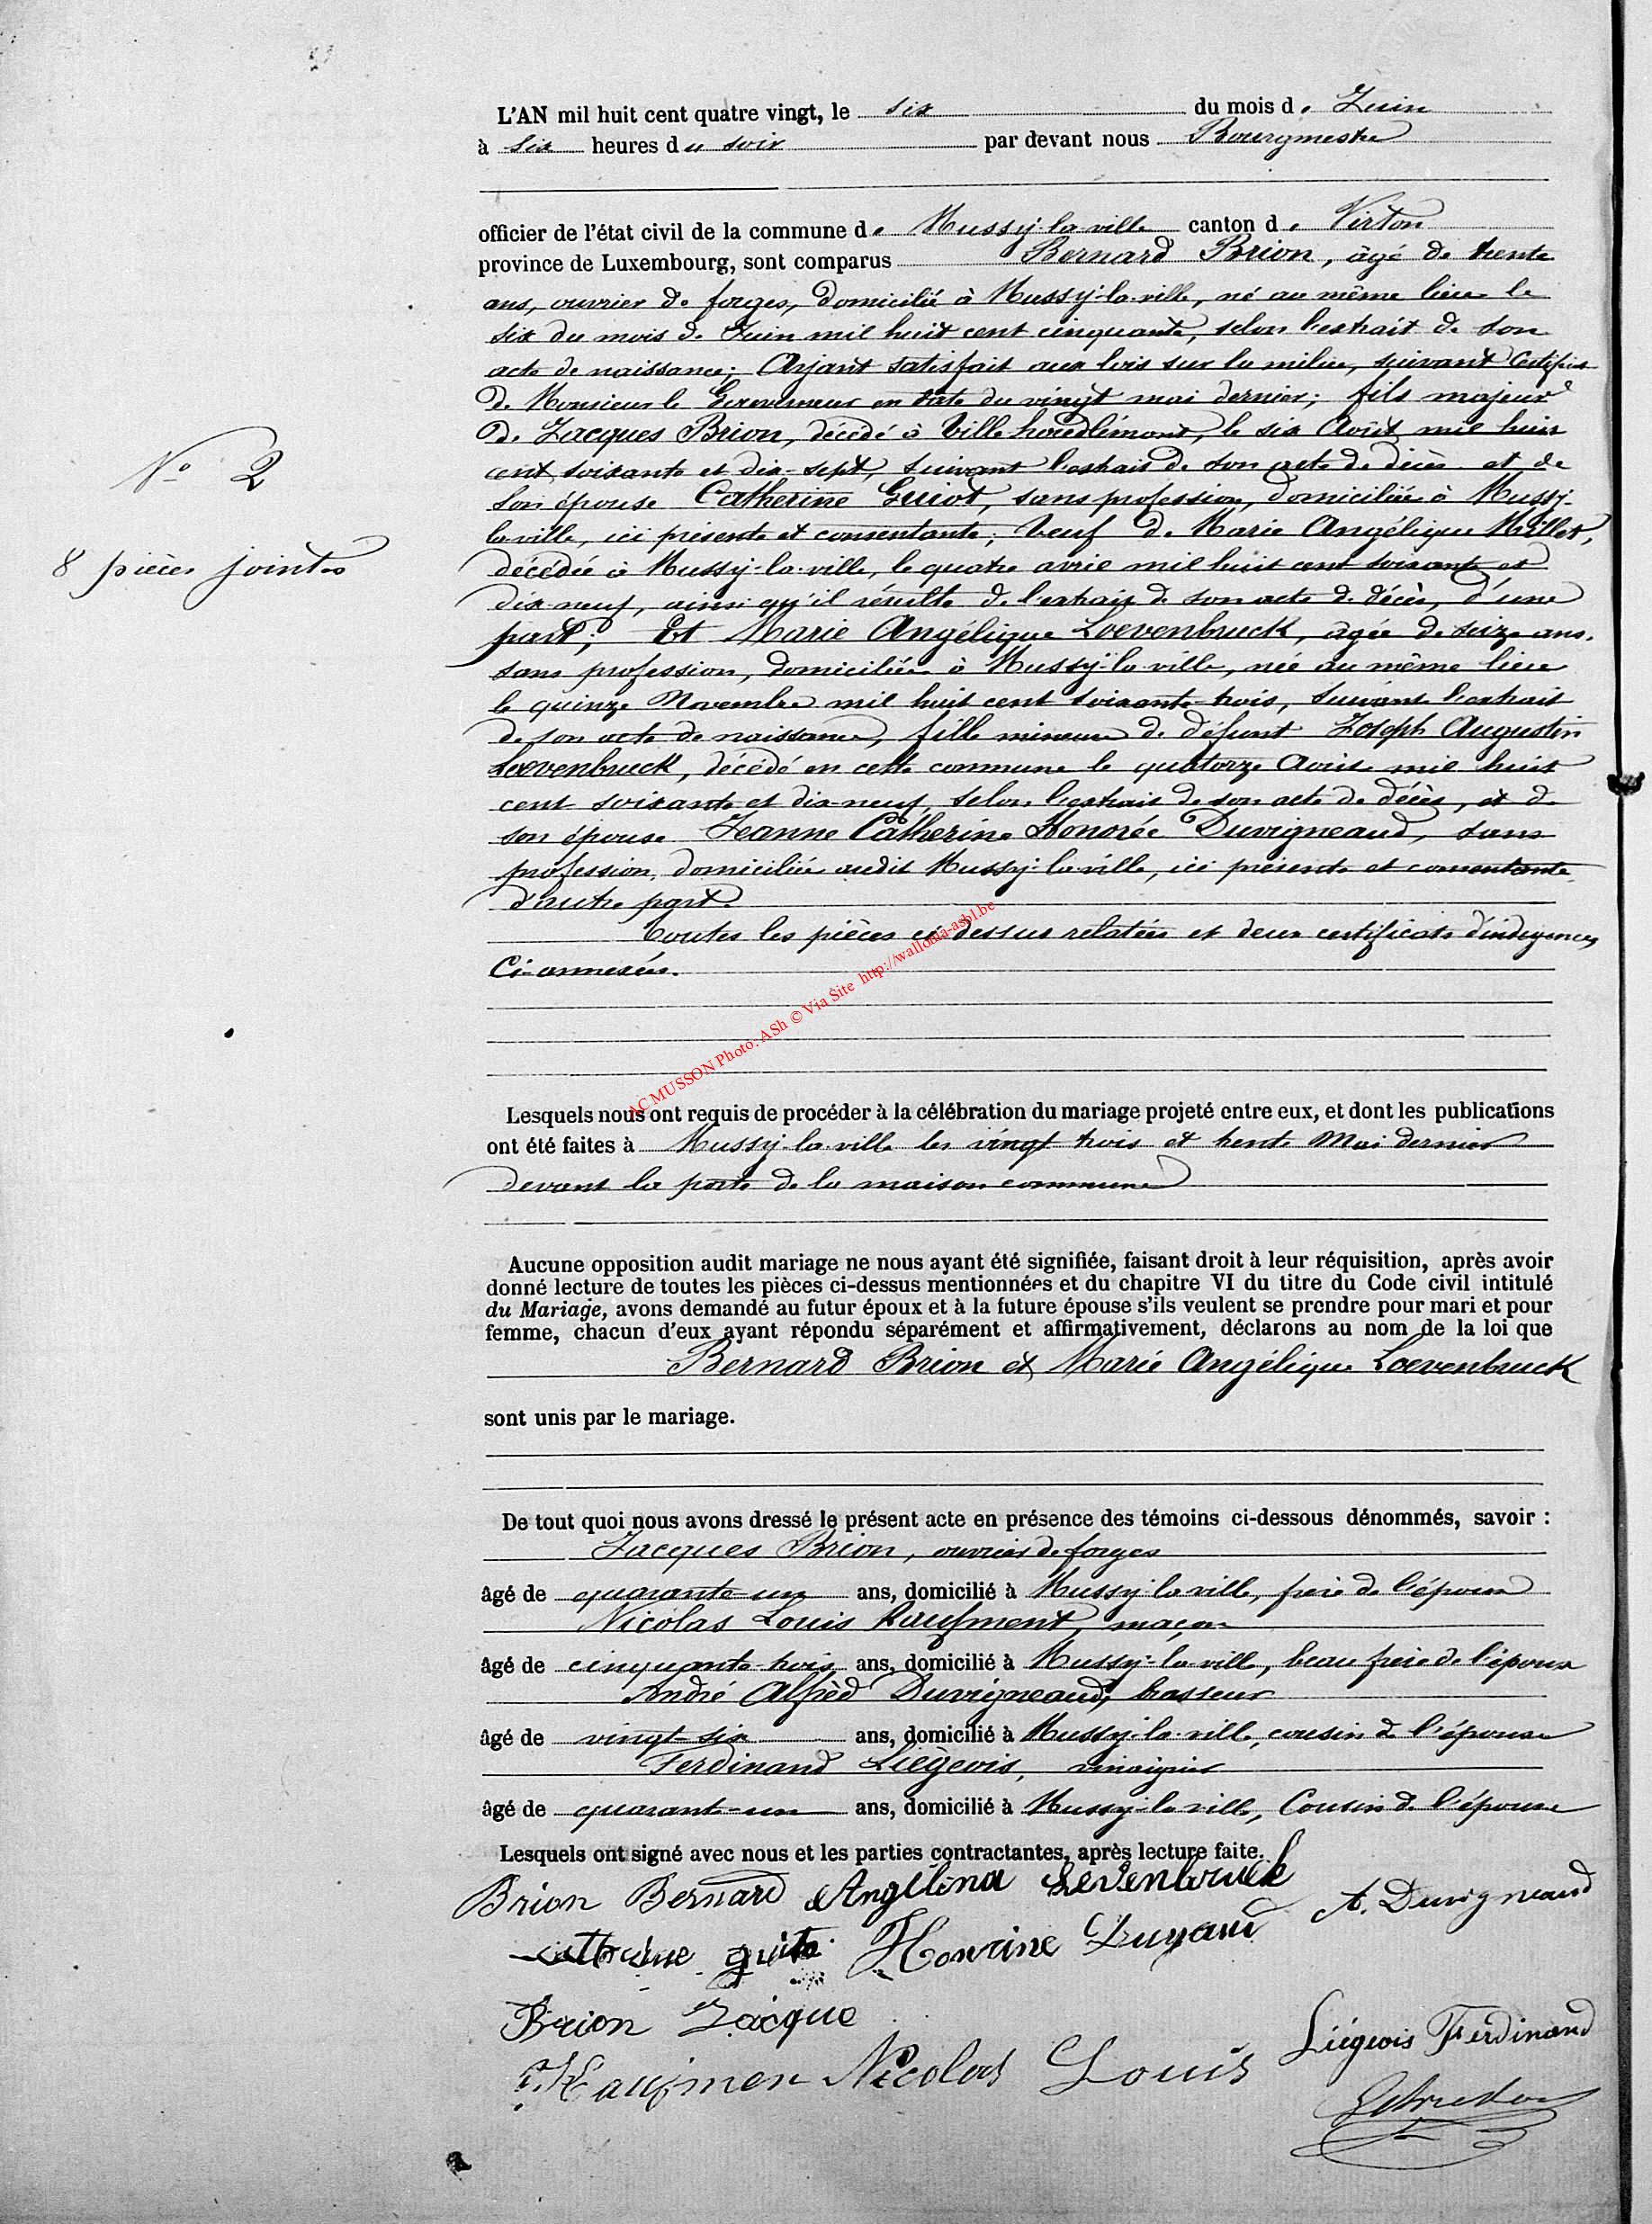 L'AN mil huit cent quatre vingt, le six du mois de Juin
à six heures du soir par devant nous Bourgmestre
officier de l'état civil de la commune de Mussy-la-ville canton de Virton
province de Luxembourg, sont comparus Bernard Brion, âgé de trente
ans, ouvrier de forges, domicilié à Mussy-la-ville, né au même lieu le
six du mois de Juin mil huit cent cinquante, selon l'extrait de son
acte de naissance; Ayant satisfait aux lois sur la milice, suivant certificat
de Monsieur le Gouverneur en date du vingt mai dernier; fils majeur
de Jacques Brion, décédé à Ville houdlémont, le six Août mil huit
cent soixante et dix-sept, suivant l'extrait de son acte de décès et de
N° 2
son épouse Catherine Guiot, sans profession, domiciliée à Mussy-
la-ville, ici présente et consentante; veuf de Marie Angélique Millet,
8 pièces jointes
décédée à Mussy-la-ville, le quatre avril mil huit cent soixante et
dix-neuf, ainsi qu'il résulte de l'extrait de son acte de décès, d'une
part; Et Marie Angélique Loevenbruck, âgée de seize ans,
sans profession, domiciliée à Mussy-la-ville, née au même lieu
le quinze Novembre mil huit cent soixante-trois, suivant l'extrait
de son acte de naissance, fille mineure de défunt Joseph Augustin
Loevenbruck, décédé en cette commune le quatorze Août mil huit
cent soixante et dix-neuf, selon l'extrait de son acte de décès, et de
son épouse Jeanne Catherine Honorée Duvigneaud, sans
profession, domiciliée audit Mussy-la-ville, ici présente et consentante
d'autre part.
Toutes les pièces ci-dessus relatées et deux certificats d'indigence
Ci-annexées.
AC MUSSON Photo. ASh © Via Site http://wallonia-asbl.be
Lesquels nous ont requis de procéder à la célébration du mariage projeté entre eux, et dont les publications
ont été faites à Mussy-la-ville les vingt trois et trente Mai dernier
devant la porte de la maison commune
Aucune opposition audit mariage ne nous ayant été signifiée, faisant droit à leur réquisition, après avoir
donné lecture de toutes les pièces ci-dessus mentionnées et du chapitre VI du titre du Code civil intitulé
du Mariage, avons demandé au futur époux et à la future épouse s'ils veulent se prendre pour mari et pour
femme, chacun d'eux ayant répondu séparément et affirmativement, déclarons au nom de la loi que
Bernard Brion et Marie Angélique Loevenbruck
sont unis par le mariage.
De tout quoi nous avons dressé le présent acte en présence des témoins ci-dessous dénommés, savoir :
Jacques Brion, ouvrier de forges
âgé de quarante-un ans, domicilié à Mussy-la-ville, frère de l'époux
Nicolas Louis Kaufment, maçon
âgé de cinquante-trois ans, domicilié à Mussy-la-ville, beau frère de l'époux
André Alfred Duvigneaud, brasseur
âgé de vingt-six ans, domicilié à Mussy-la-ville, cousin de l'épouse
Ferdinand Liégeois, vinaigrier
âgé de quarante-un ans, domicilié à Mussy-la-ville, Cousin de l'épouse
Lesquels ont signé avec nous et les parties contractantes, après lecture faite.
Brion Bernard Angélina Levenbruck A. Duvigneaud
Honrine
Brion Jacque
Liégeois Ferdinand
Nicolas Louis